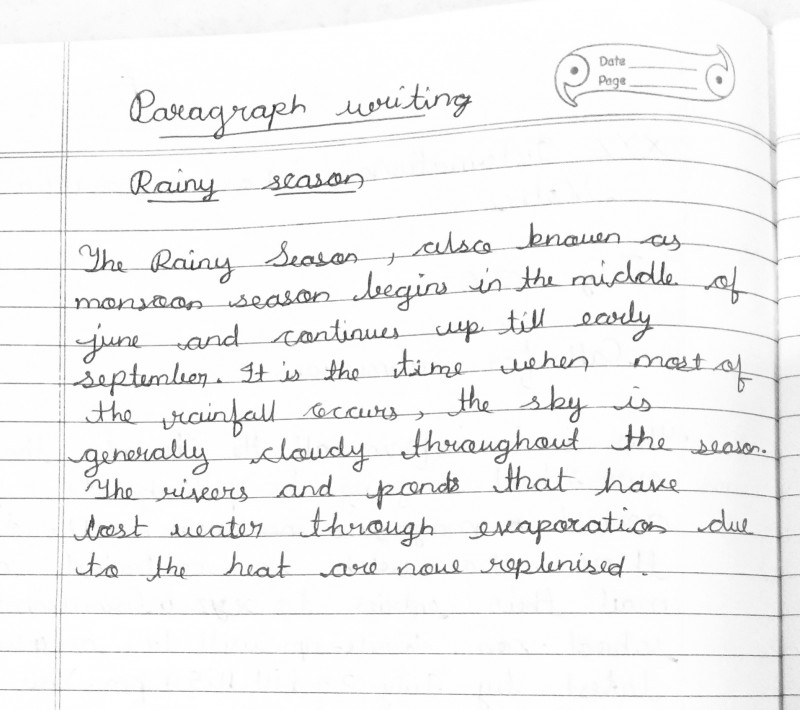 Date
Page
Paragraph writing
Rainy season
The Rainy Season, also known as
monsoon season begins in the middle of
june and continues up till early
september. It is the time when most of
the rainfall occurs, the sky is
generally cloudy throughout the season.
The rivers and ponds that have
lost water through evaporation due
to the heat are now replenised.